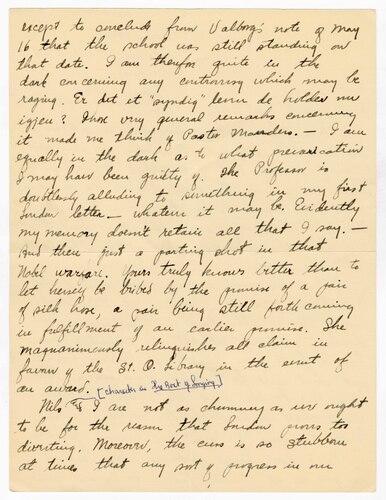 except to conclude from Valborg's note of May
16 that the school was still standing on
that date. I am therefor quite in the
dark concerning any controversy which may be
raging. Er det et "syndig" levned de holder nu
igjen? Those very general remarks concerning
it made me think of Pastor Manders. — I am
equally in the dark as to what prevarication
I may have been guilty of. The Professor is
doubtlessly alluding to something in my first
London letter — whatever it may be. Evidently
my memory doesn't retain all that I say. —
And then just a parting shot in that
Nobel warian. Yours truly knows better than to
let herself be bribed by the promise of a pair
of silk hose, a pair being still forthcoming
in fulfillment of an earlier promise. She
magnanimously relinquishes all claim in
favor of the St. O. Library in the event of
an award. [character in The Host of
Nels & I are not as chummy as we ought
to be for the reason that London proves too
diverting. Moreover, the cuss is so stubborn
at times that any sort of progress in our